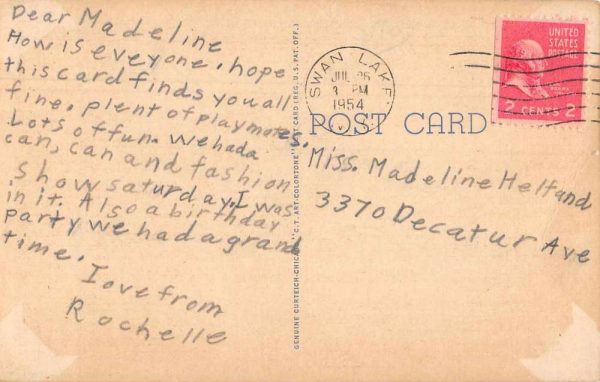 Dear Madeline
How is eveyone. hope
this card finds you all
fine. plent of playmates.
Lots of fun. We had a
can, can and fashion
show saturday. I was
in it. Also a birthday
party we had a grand
time.
Love from
Rochelle
GENUINE CURTEICH-CHICAGO "C.T. ART-COLORTONE" POST CARD (REG. U.S. PAT. OFF.)
SWAN LAKE
JUL 26
3 PM
1954
N.Y.
UNITED
STATES
POSTAGE
2 CENTS 2
POST CARD
Miss. Madeline Helfand
3370 Decatur Ave